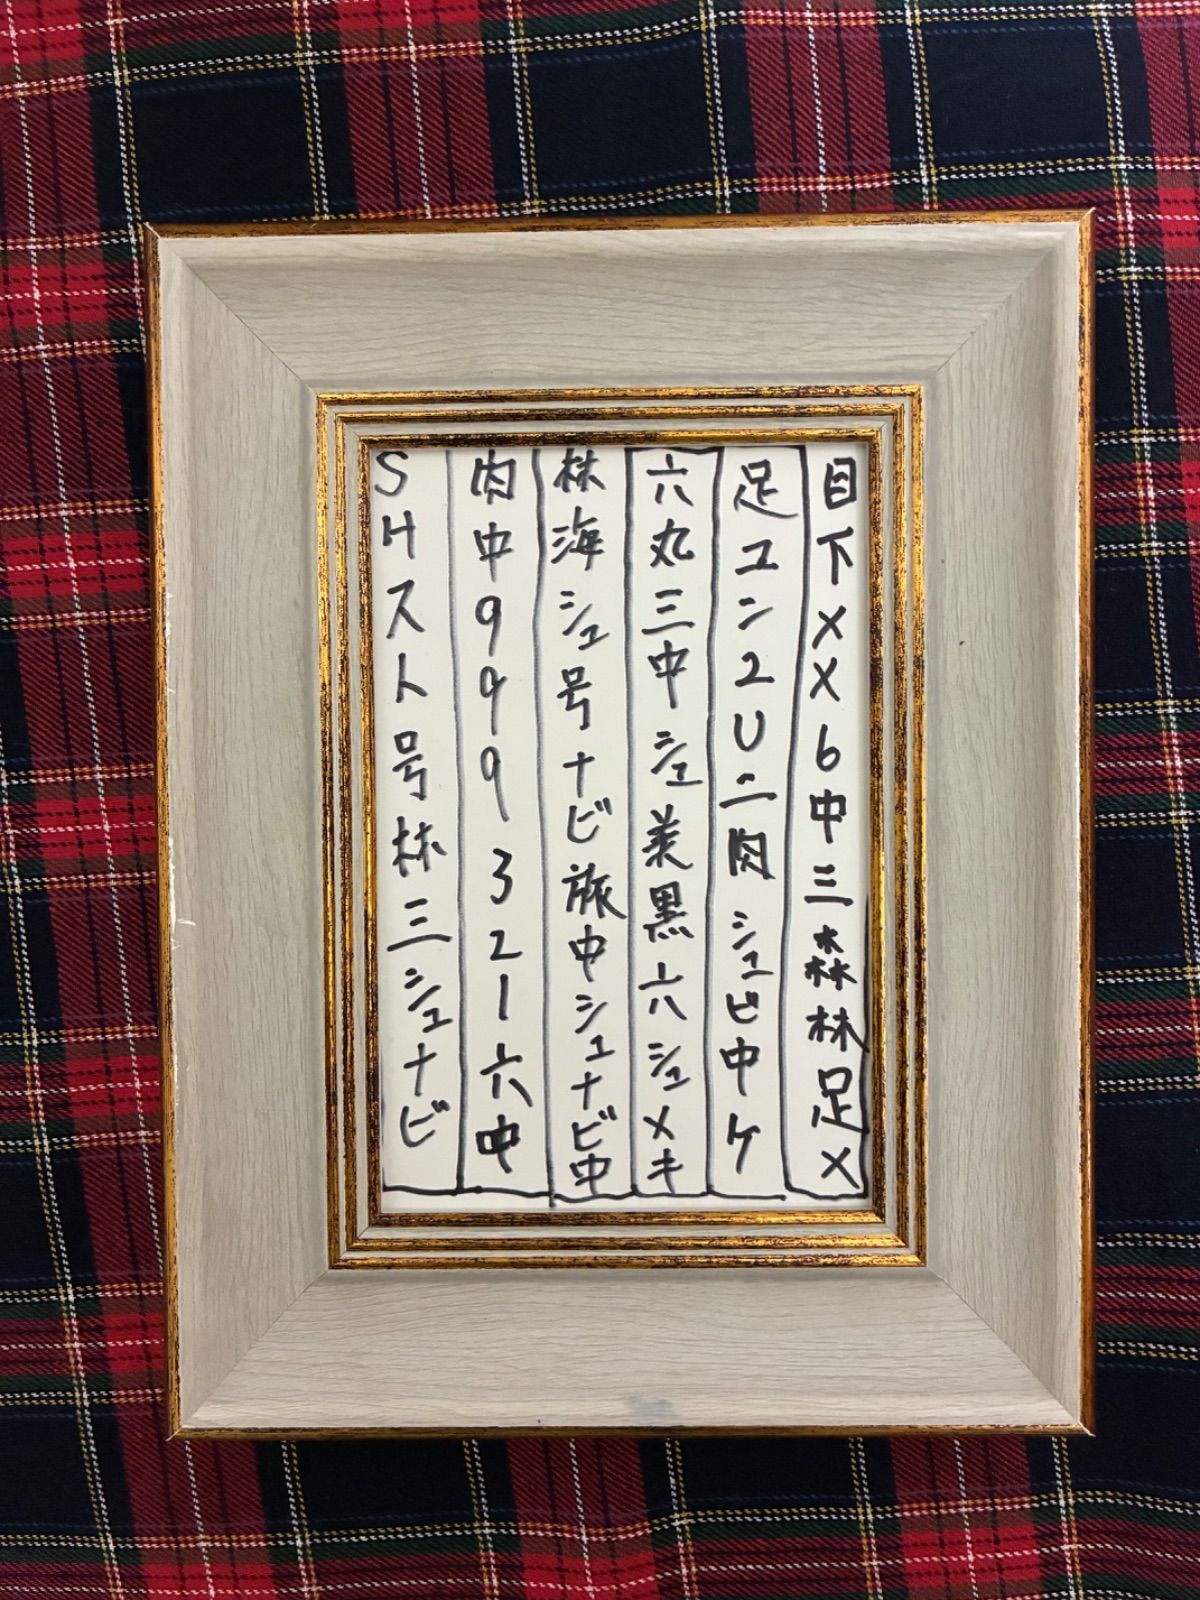 目下メメ6中三森林足メ
足ユン2U二肉シュビ中ケ
六丸三中シュ美黒六シュメキ
林海シュ号ナビ旅中シュナビ中
肉中999321六中
SHスト号林三シュナビ